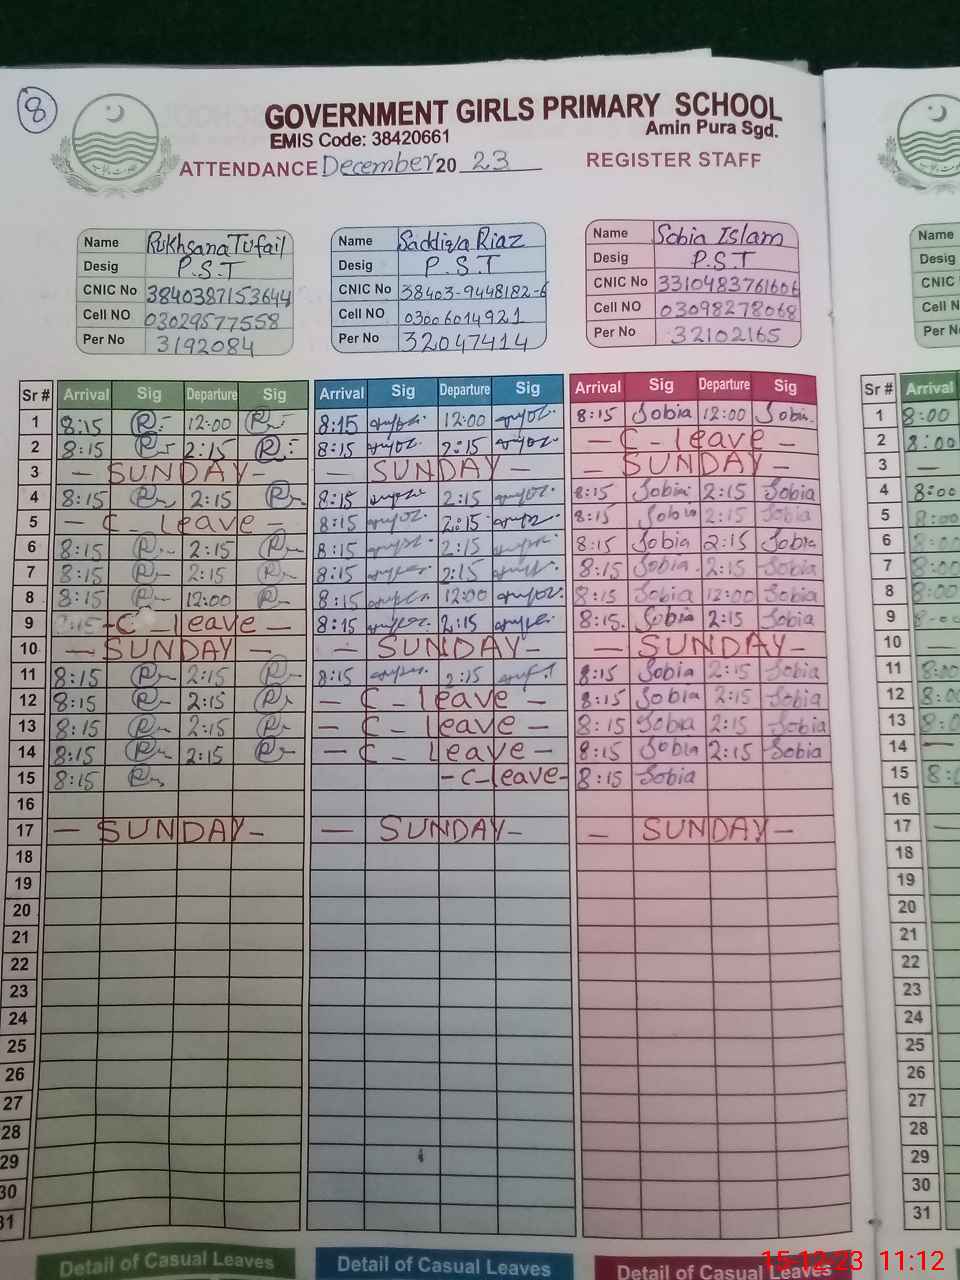 8
GOVERNMENT GIRLS PRIMARY SCHOOL
EMIS Code: 38420661 Amin Pura Sgd.
ATTENDANCE December 20 23 REGISTER STAFF
Name Rukhsana Tufail Name Saddiqa Riaz Name Sobia Islam Name
Desig P.S.T Desig P.S.T Desig P.S.T Desig
CNIC No 3840387153644 CNIC No 38403-9448182-6 CNIC No 3310483761606 CNIC
Cell NO 03029577558 Cell NO 03006014921 Cell NO 03098278068 Cell N
Per No 3192084 Per No 32047414 Per No 32102165 Per No
Sr # Arrival Sig Departure Sig Arrival Sig Departure Sig Arrival Sig Departure Sig Sr # Arrival
1 8:15 R 12:00 R 8:15 12:00 8:15 Sobia 12:00 Sobia 1 8:00
2 8:15 R 2:15 R 8:15 2:15 - C - leave - 2 8:00
3 - SUNDAY - - SUNDAY - - SUNDAY - 3 -
4 8:15 R 2:15 R 8:15 2:15 8:15 Sobia 2:15 Sobia 4 8:00
5 - C - leave - 8:15 2:15 8:15 Sobia 2:15 Sobia 5 8:00
6 8:15 R 2:15 R 8:15 2:15 8:15 Sobia 2:15 Sobia 6 8:00
7 8:15 R 2:15 R 8:15 2:15 8:15 Sobia 2:15 Sobia 7 8:00
8 8:15 R 12:00 R 8:15 12:00 8:15 Sobia 12:00 Sobia 8 8:00
9 8:15 - C - leave - 8:15 2:15 8:15 Sobia 2:15 Sobia 9 8:00
10 - SUNDAY - - SUNDAY - - SUNDAY - 10 -
11 8:15 R 2:15 R 8:15 2:15 8:15 Sobia 2:15 Sobia 11 8:00
12 8:15 R 2:15 R - C - leave - 8:15 Sobia 2:15 Sobia 12 8:00
13 8:15 R 2:15 R - C - leave - 8:15 Sobia 2:15 Sobia 13 8:0
14 8:15 R 2:15 R - C - leave - 8:15 Sobia 2:15 Sobia 14 -
15 8:15 R - C - leave - 8:15 Sobia 15 8:0
16 16
17 - SUNDAY - - SUNDAY - - SUNDAY - 17 -
18 18
19 19
20 20
21 21
22 22
23 23
24 24
25 25
26 26
27 27
28 28
29 29
30 30
31 31
Detail of Casual Leaves Detail of Casual Leaves Detail of Casual Leaves
15-12-23 11:12